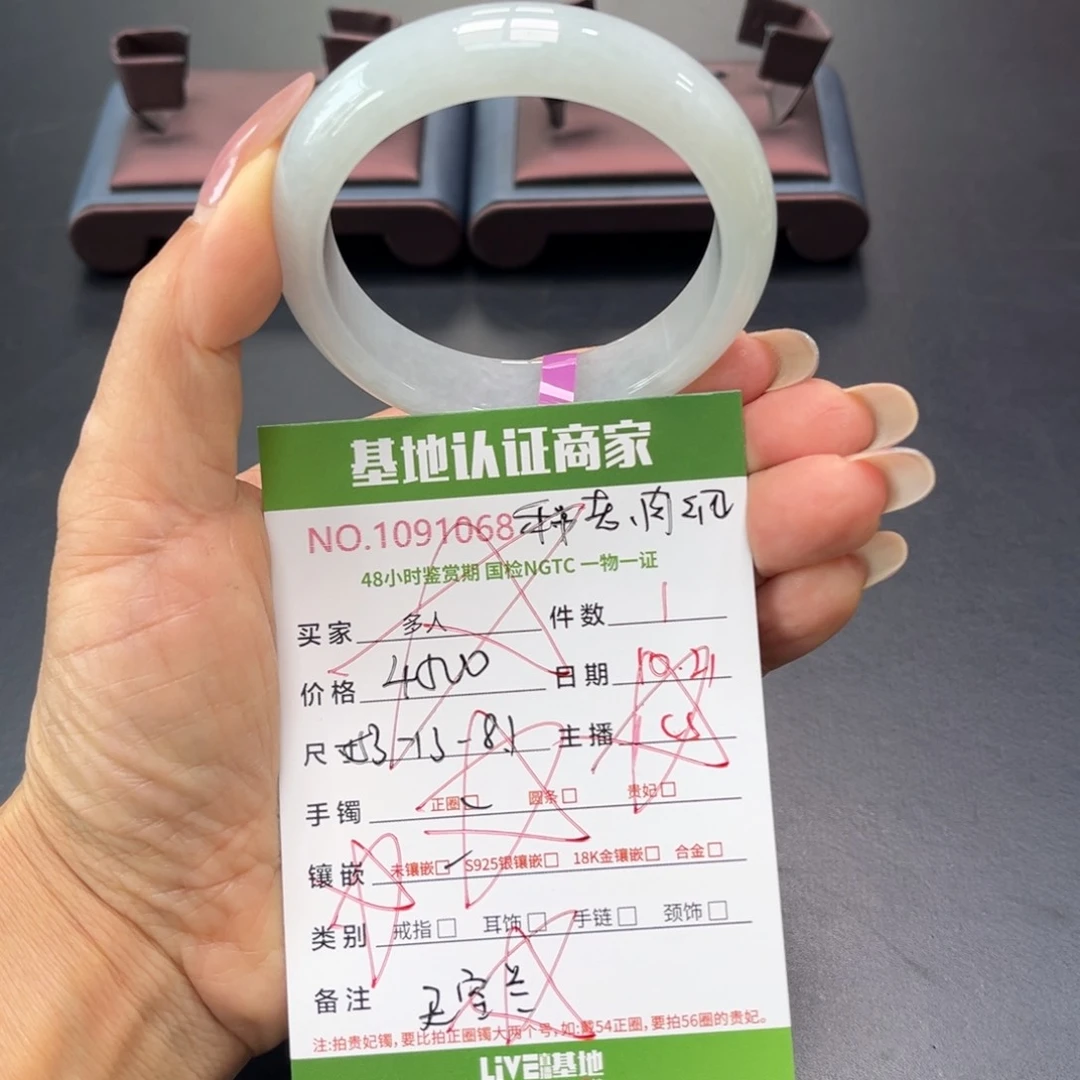 基地认证商家
NO.1091068
48小时鉴赏期 国检NGTC 一物一证
买家 多人 件数 1
价格 4000 日期 10.21
尺 53-13-8.1 主播 CS
手镯 正圈☑ 圆条☐ 贵妃☐
镶嵌 未镶嵌☑ S925银镶嵌☐ 18K金镶嵌☐ 合金☐
类别 戒指☐ 耳饰☐ 手链☐ 颈饰☐
备注 天空兰
注:拍贵妃镯,要比拍正圈镯大两个号,如:戴54正圈,要拍56圈的贵妃。
LiVE直播基地